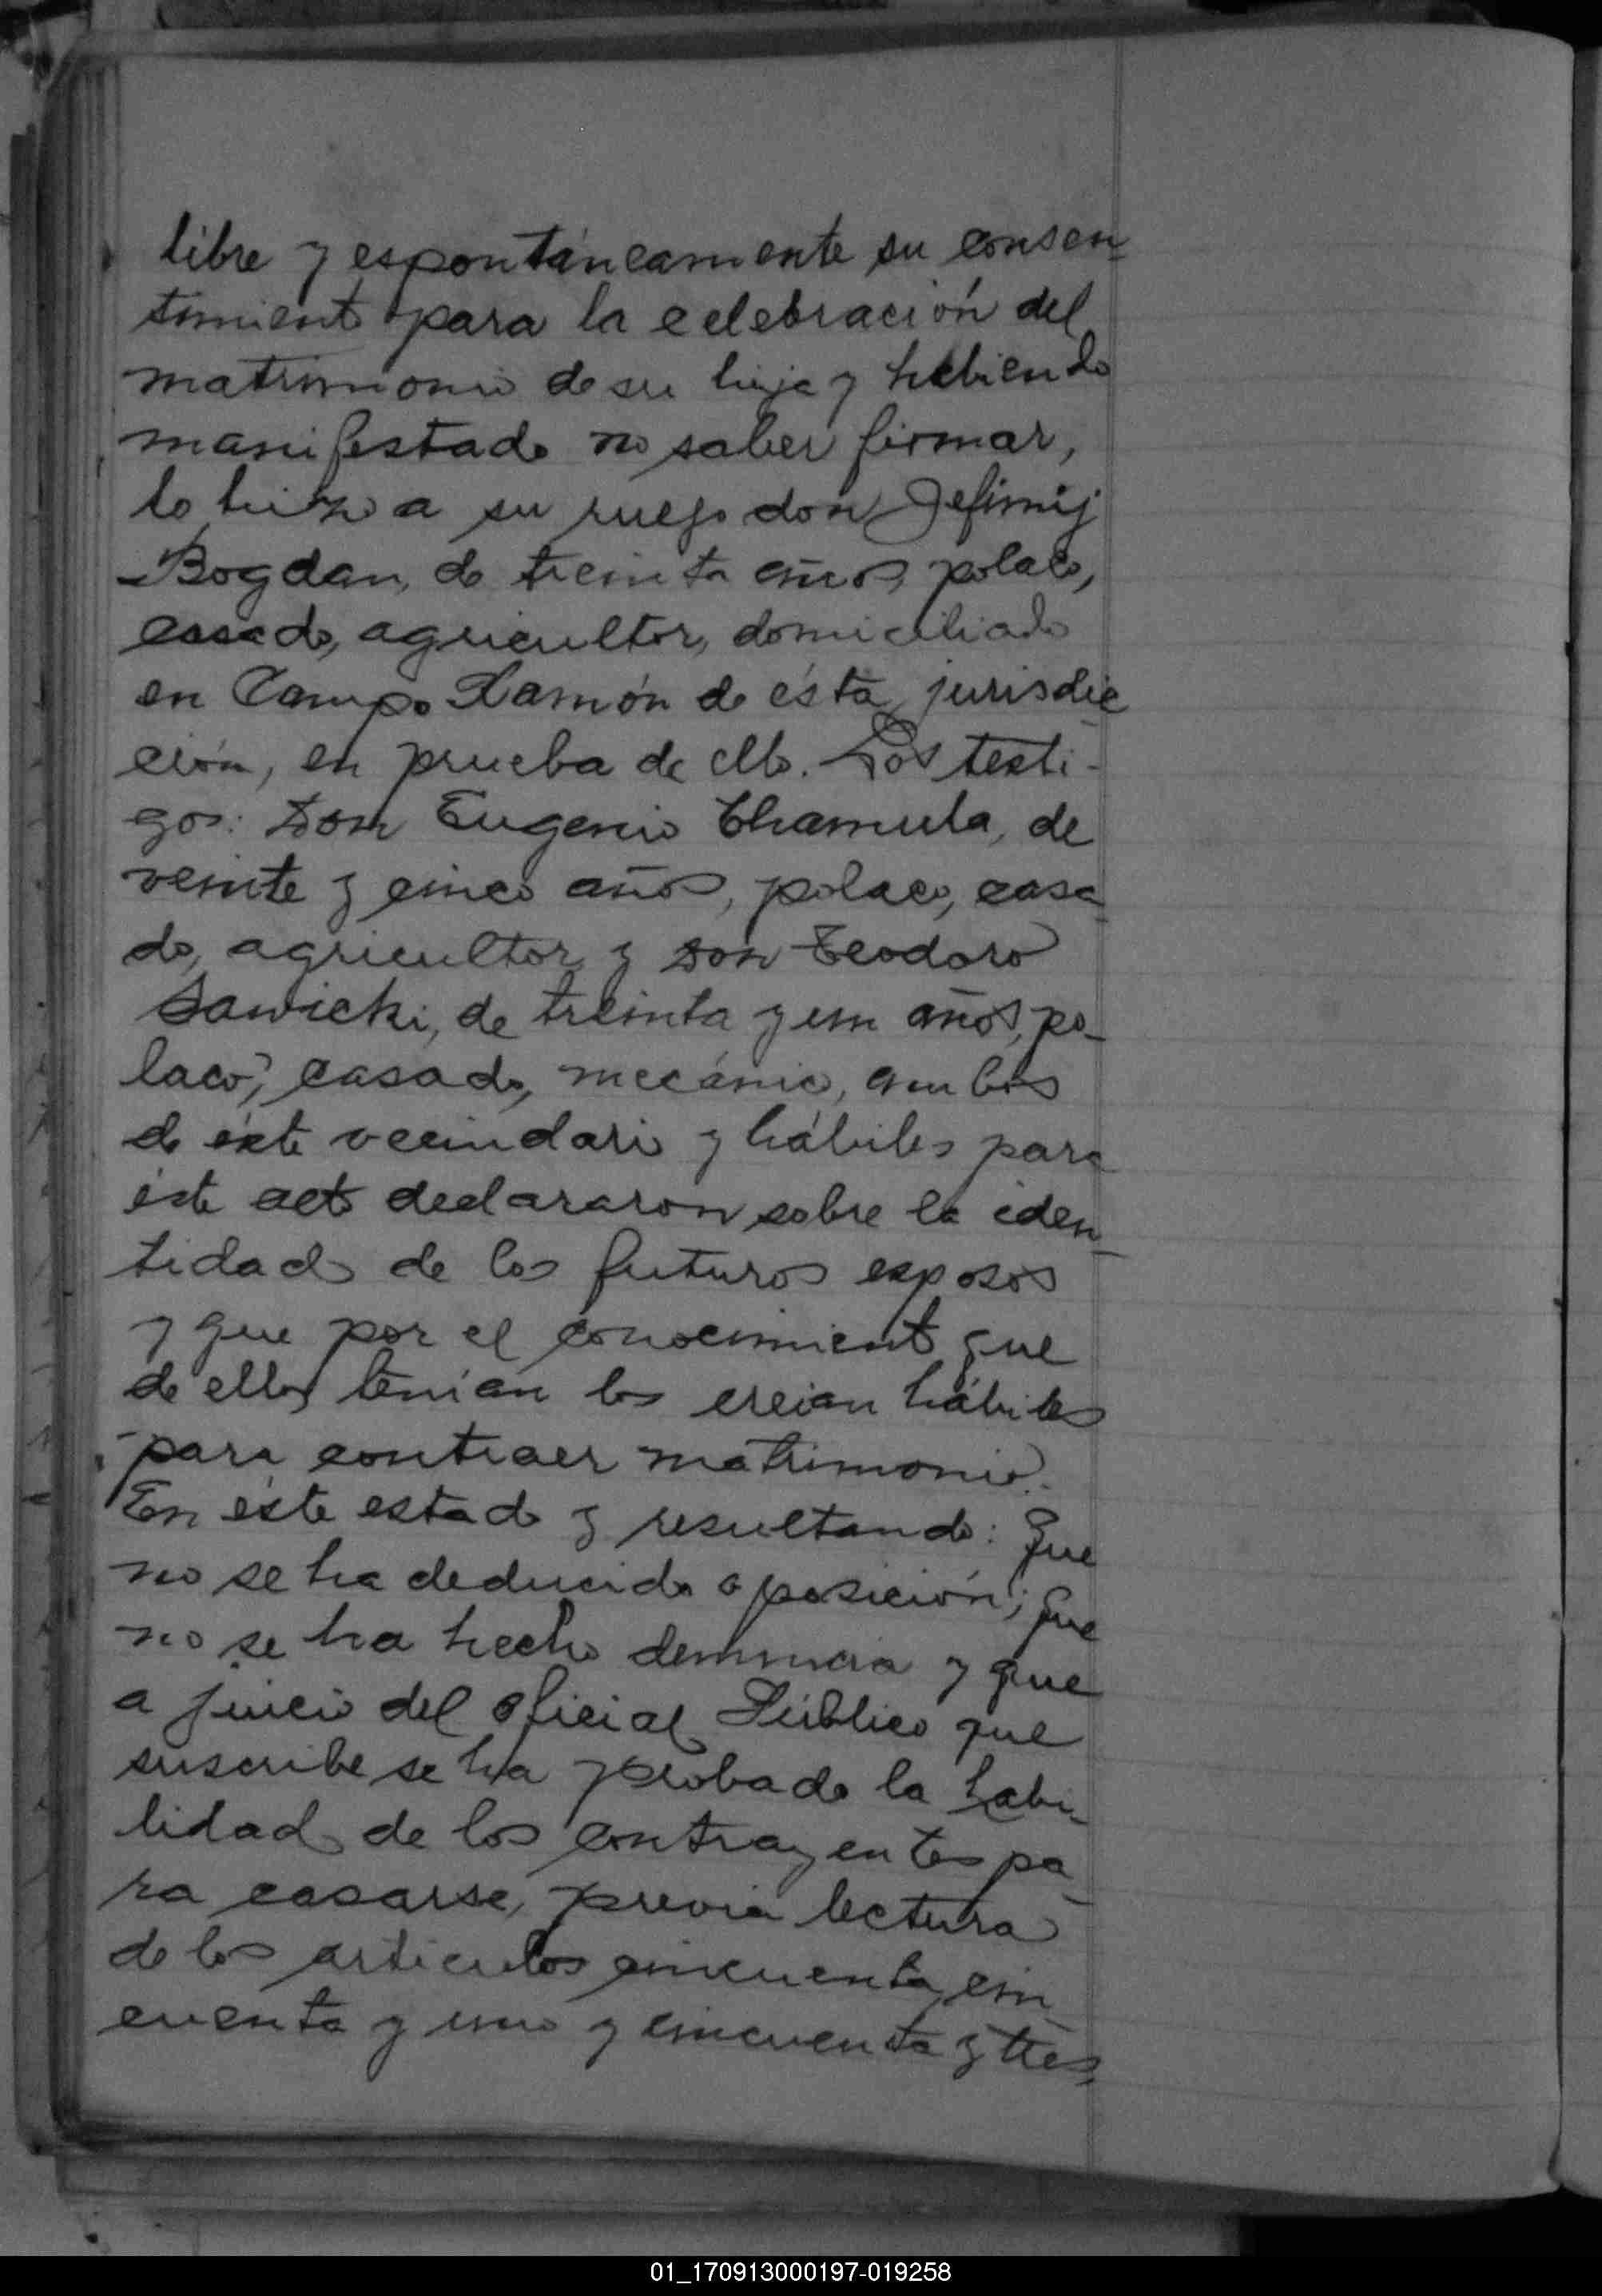 libre y espontáneamente su consen-
timiento para la celebración del
matrimonio de su hija y habiendo
manifestado no saber firmar,
lo hizo a su ruego don Jefimij
Bogdan, de treinta años, polaco,
casado, agricultor, domiciliado
en Campo Ramón de ésta jurisdic
ción, en prueba de ello. Los testi-
gos: Don Eugenio Chamula, de
veinte y cinco años, polaco, casa-
do, agricultor y Don Teodoro
Sawicki, de treinta y un años, po-
laco, casado, mecánico, ambos
de éste vecindario y hábiles para
éste acto declararon sobre la iden-
tidad de los futuros esposos
y que por el conocimiento que
de ellos tenían los creían hábiles
para contraer matrimonio.
En éste estado y resultando: Que
no se ha deducido oposición; que
no se ha hecho denuncia y que
a juicio del oficial Público que
suscribe se ha probado la habi-
lidad de los contrayentes pa-
ra casarse, previa lectura
de los artículos cincuenta, cin-
cuenta y uno y cincuenta y tres,
01_170913000197-019258